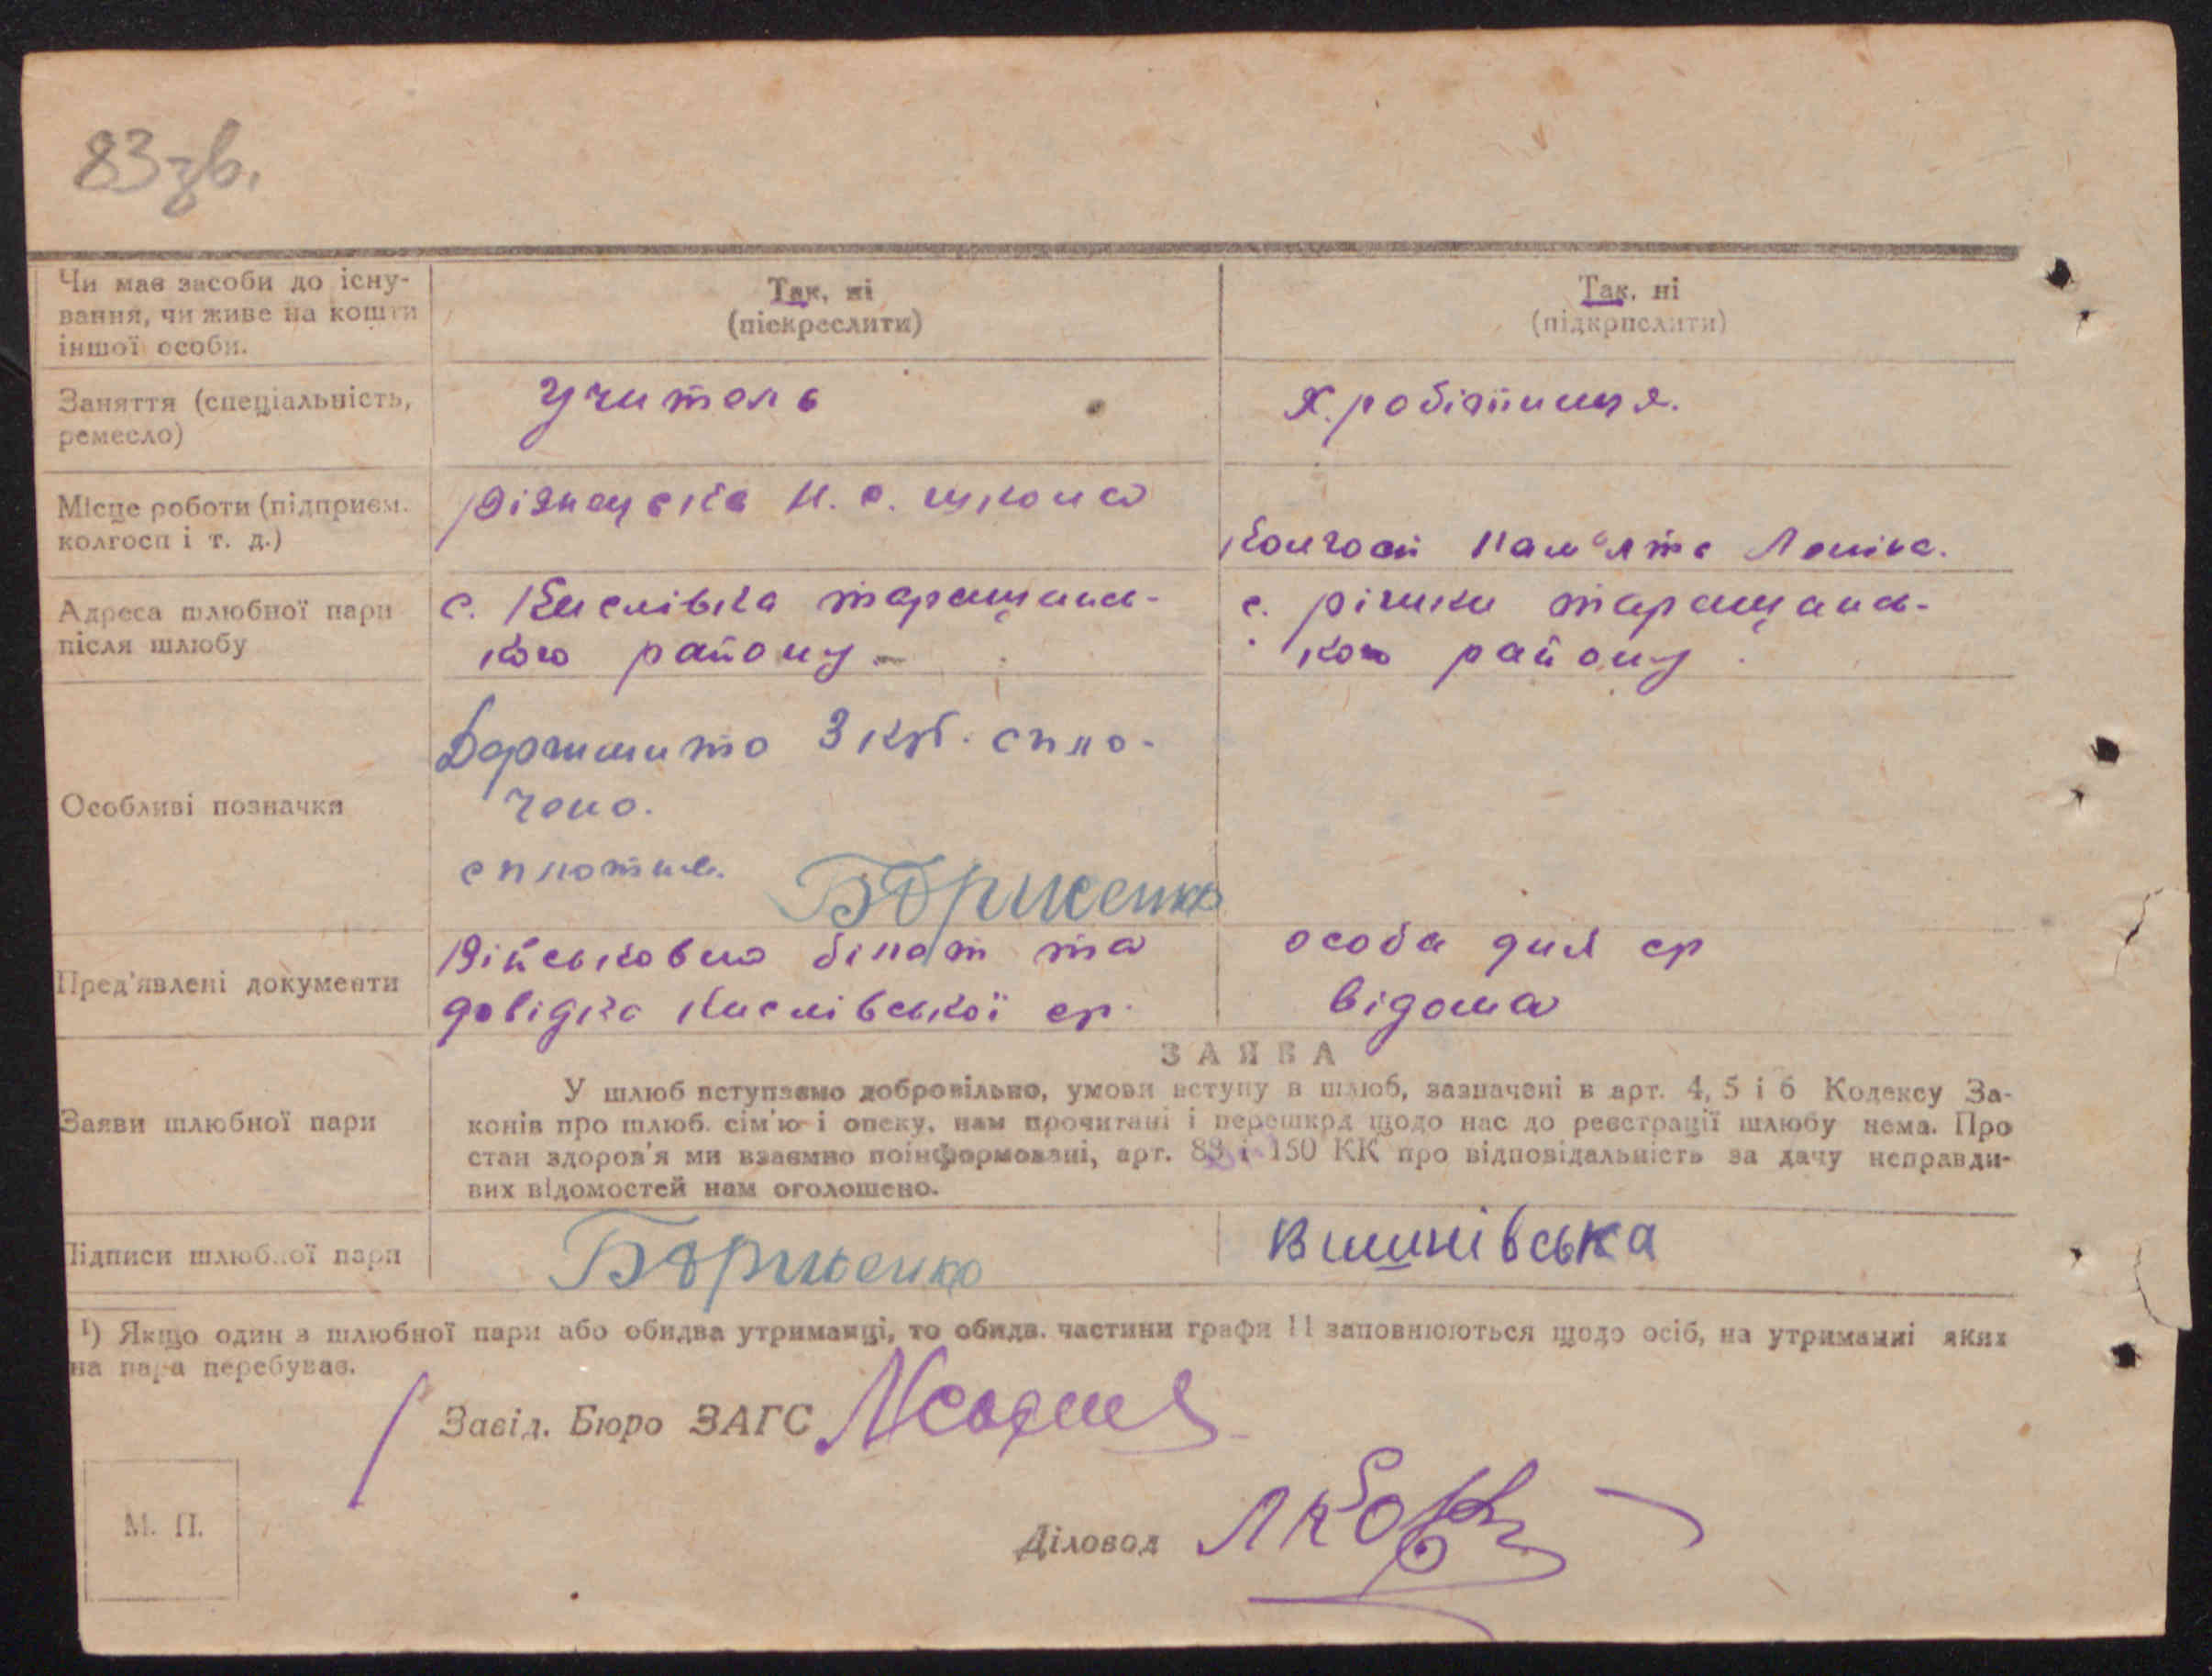 83 зв.
Чи має засоби до існу-
вання, чи живе на кошти
іншої особи.
Так, ні
(піекреслити)
Так, ні
(підкрпслити)
Заняття (спеціальність,
ремесло)
Учитель
К. робітниця.
Місце роботи (підприєм.
колгосп і т. д.)
Н. с. школа
Колгосп Пам'яті Леніна.
Адреса шлюбної пари
після шлюбу
с. Кислівка таращансь-
кого району
с. річки таращансь-
кого району
Особливі позначки
3 крб. спло-
чено.
сплотив. Борженко
Пред'явлені документи
Військовий білет та
довідка Кислівської ср.
особа для ср
відома
ЗАЯВА
Заяви шлюбної пари
У шлюб вступаємо добровільно, умови вступу в шлюб, зазначені в арт. 4, 5 і 6 Кодексу За-
конів про шлюб. сім'ю і опеку, нам прочитані і перешкод щодо нас до реєстрації шлюбу нема. Про
стан здоров'я ми взаємно поінформовані, арт. 83 і 150 КК про відповідальність за дачу неправди-
вих відомостей нам оголошено.
Підписи шлюбної пари
Борженко
Вишнівська
1) Якщо один з шлюбної пари або обидва утриманці, то обидв. частини графи 11 заповнюються щодо осіб, на утриманні яких
на пара перебуває.
Завід. Бюро ЗАГС
Діловод
М. П.